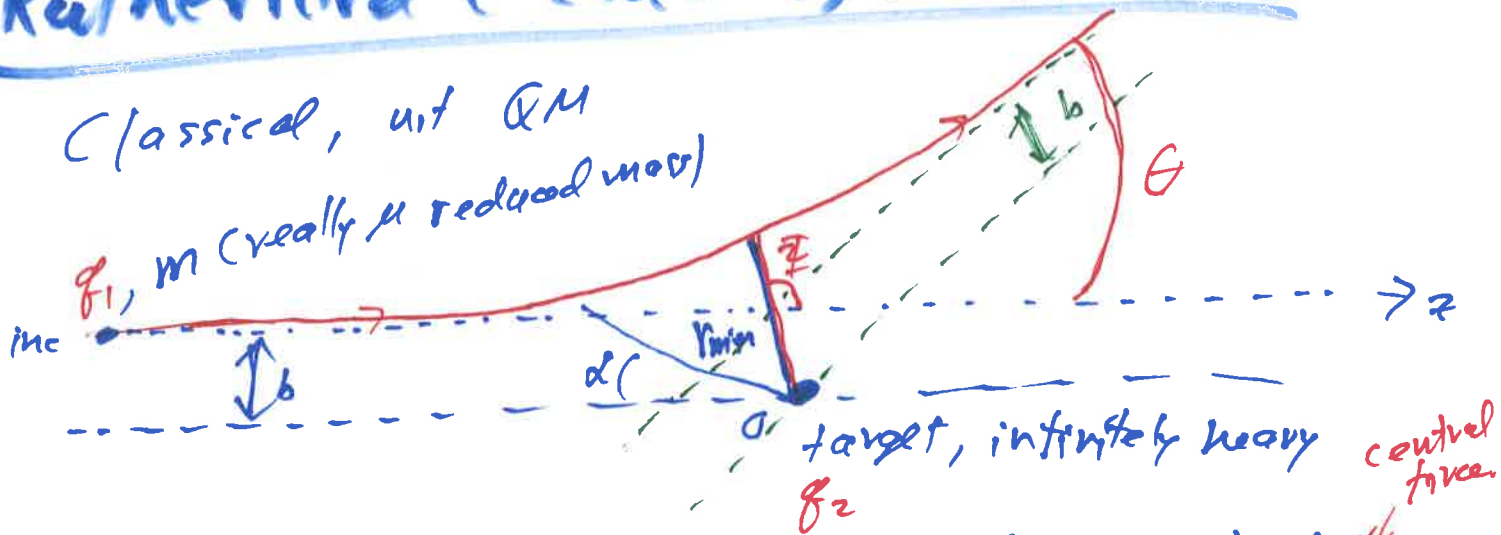 Rutherford
Classical, not QM
q₁, m (really μ reduced mass)
inc
b
b
θ
α
r_min
z
O
target, infinitely heavy
q₂
central
force